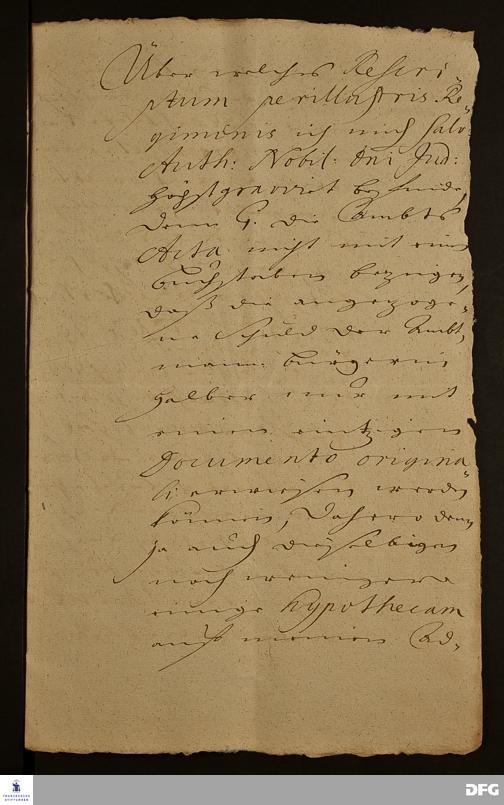 Über welches Rescri-
ptum perillustris Re-
giminis ich mich salv:
Auth: Nobil: Dni Jud:
höchst gravirt befinde,
denn die Ambts
Acta nicht mit einem
Buchstaben bezeigen,
daß die angezoge-
ne Schuld der Ambt-
mann: Bürgerin
halber nur mit
einen eintzigen
Documento origina-
li erwiesen werden
können, Dahero denn
ja auch dieselbigen
noch weniger
einige hypothecam
auff meinen Ad-
FRANCKESCHE
STIFTUNGEN
DFG